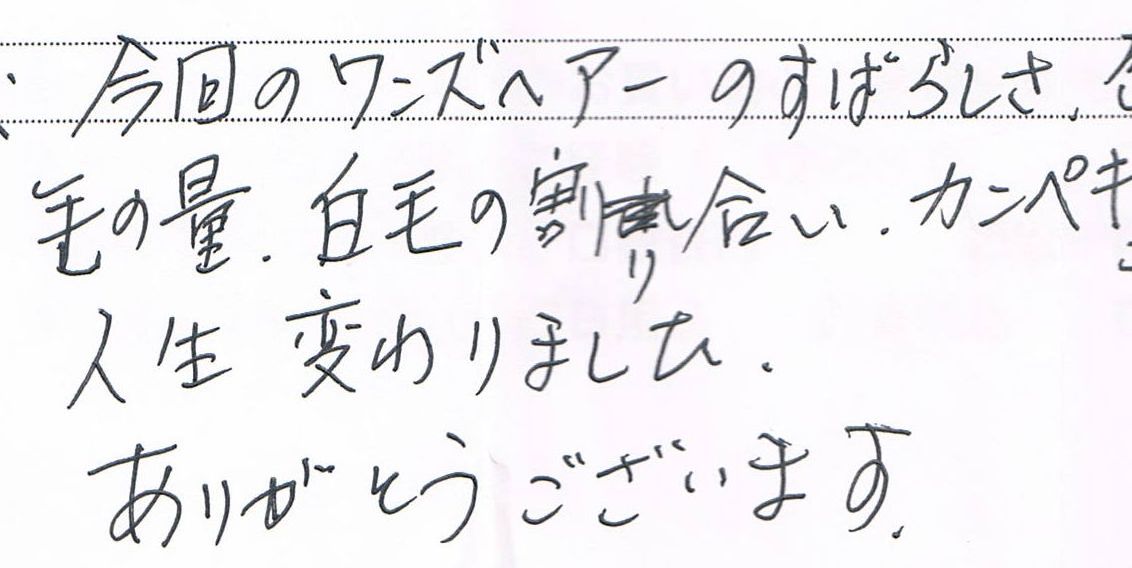 今回のワンズヘアーのすばらしさ、
毛の量、白毛の割り合い、カンペキ
人生変わりました。
ありがとうございます。